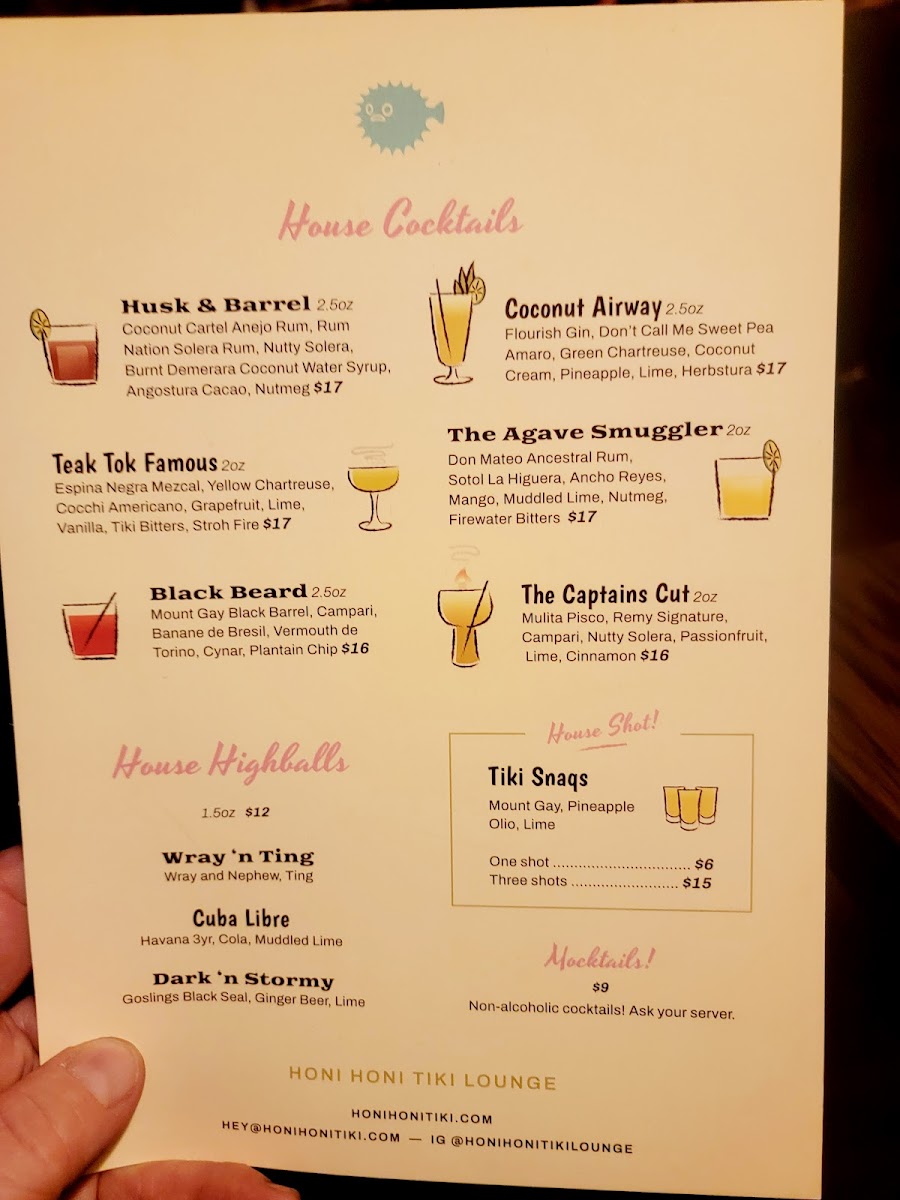 House Cocktails
Husk & Barrel 2.5oz
Coconut Cartel Anejo Rum, Rum
Nation Solera Rum, Nutty Solera,
Burnt Demerara Coconut Water Syrup,
Angostura Cacao, Nutmeg $17
Coconut Airway 2.5oz
Flourish Gin, Don't Call Me Sweet Pea
Amaro, Green Chartreuse, Coconut
Cream, Pineapple, Lime, Herbstura $17
Teak Tok Famous 2oz
Espina Negra Mezcal, Yellow Chartreuse,
Cocchi Americano, Grapefruit, Lime,
Vanilla, Tiki Bitters, Stroh Fire $17
The Agave Smuggler 2oz
Don Mateo Ancestral Rum,
Sotol La Higuera, Ancho Reyes,
Mango, Muddled Lime, Nutmeg,
Firewater Bitters $17
Black Beard 2.5oz
Mount Gay Black Barrel, Campari,
Banane de Bresil, Vermouth de
Torino, Cynar, Plantain Chip $16
The Captains Cut 2oz
Mulita Pisco, Remy Signature,
Campari, Nutty Solera, Passionfruit,
Lime, Cinnamon $16
House Highballs
1.5oz $12
Wray 'n Ting
Wray and Nephew, Ting
Cuba Libre
Havana 3yr, Cola, Muddled Lime
Dark 'n Stormy
Goslings Black Seal, Ginger Beer, Lime
House Shot!
Tiki Snaqs
Mount Gay, Pineapple
Olio, Lime
One shot ................................ $6
Three shots ......................... $15
Mocktails!
$9
Non-alcoholic cocktails! Ask your server.
HONI HONI TIKI LOUNGE
HONIHONITIKI.COM
HEY@HONIHONITIKI.COM — IG @HONIHONITIKILOUNGE